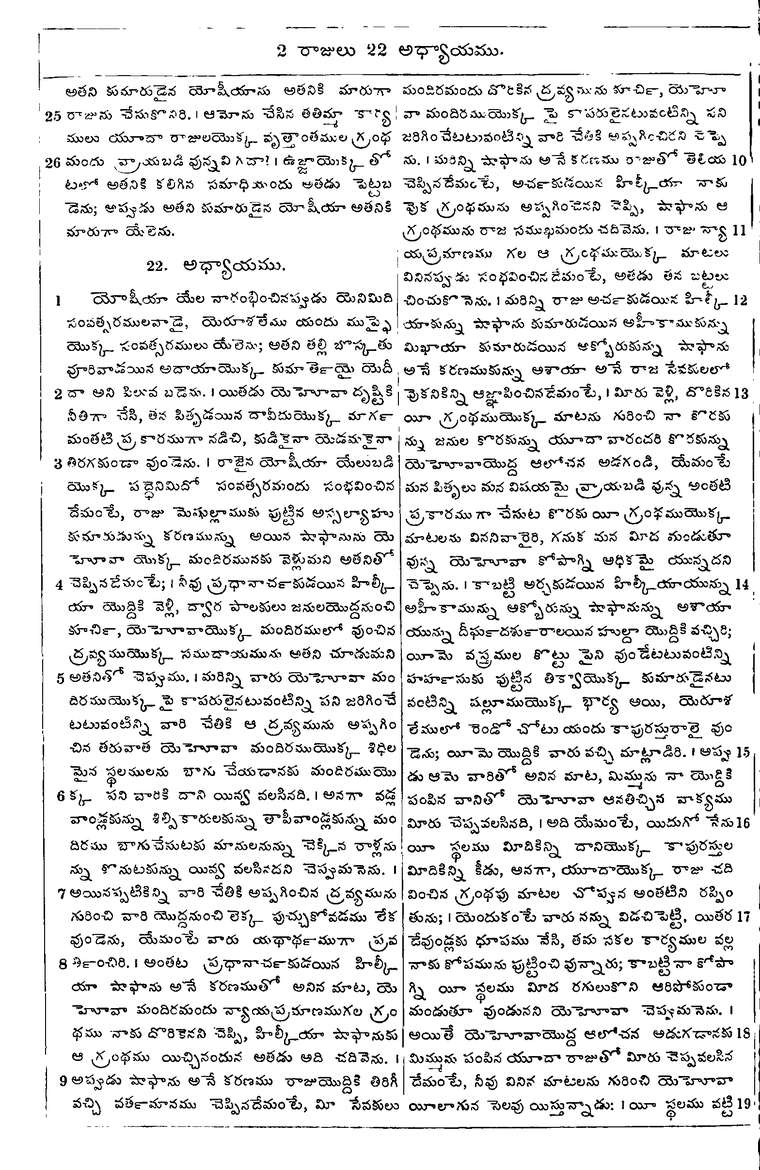 2 రాజులు 22 అధ్యాయము.
అతని కుమారుడైన యోషీయాను అతనికి మారుగా
25 రాజును చేసుకొనిరి. । ఆమోను చేసిన తతిమ్మా కార్య
ములు యూదా రాజులయొక్క వృత్తాంతముల గ్రంథ
26 మందు వ్రాయబడి వున్నవి గదా? । ఉజ్జాయొక్క తో
టలో అతనికి కలిగిన సమాధియందు అతడు పెట్టబ
డెను; అప్పుడు అతని కుమారుడైన యోషీయా అతనికి
మారుగా యేలెను.
22. అధ్యాయము.
1 యోషీయా యేల నారంభించినప్పుడు యెనిమిది
సంవత్సరములవాడై, యెరూశలేము యందు ముప్ఫై
యొక్క సంవత్సరములు యేలెను; అతని తల్లి బొస్కతు
వూరివాడయిన అదాయాయొక్క కుమార్తెయై యెదీ
2 దా అని పిలువ బడెను. । యితడు యెహోవా దృష్టికి
నీతిగా చేసి, తన పితృడయిన దావీదుయొక్క మార్గ
మంతటి ప్రకారముగా నడిచి, కుడికైనా యెడమకైనా
3 తిరగకుండా వుండెను. । రాజైన యోషీయా యేలుబడి
యొక్క పద్ధెనిమిదో సంవత్సరమందు సంభవించిన
దేమంటే, రాజు మెషుల్లాముకు పుట్టిన అస్సల్యాహు
కుమారుడున్ను కరణమున్ను అయిన షాఫానును యె
హోవా యొక్క మందిరమునకు వెళ్లుమని అతనితో
4 చెప్పినదేమంటే; । నీవు ప్రధానార్చకుడయిన హిల్కీ
యా యొద్దికి వెళ్లి, ద్వార పాలకులు జనులయొద్దనుంచి
కూర్చి, యెహోవాయొక్క మందిరములో వుంచిన
ద్రవ్యముయొక్క సముదాయమును అతని చూడుమని
5 అతనితో చెప్పుము. । మరిన్ని వారు యెహోవా మం
దిరముయొక్క పై కాపరులైనటువంటిన్ని పని జరిగించే
టటువంటిన్ని వారి చేతికి ఆ ద్రవ్యమును అప్పగిం
చిన తరువాత యెహోవా మందిరముయొక్క శిథిల
మైన స్థలములను బాగు చేయడానకు మందిరముయొ
6 క్క పని వారికి దాని యివ్వ వలసినది. । అనగా వడ్ల
వాండ్లకున్ను శిల్పి కారులకున్ను తాపీవాండ్లకున్ను మం
దిరము బాగుచేసుటకు మానులనున్ను చెక్కిన రాళ్లను
న్ను కొనుటకున్ను యివ్వ వలసినదని చెప్పుమనెను. ।
7 అయినప్పటికిన్ని వారి చేతికి అప్పగించిన ద్రవ్యమును
గురించి వారి యొద్దనుంచి లెక్క పుచ్చుకోవడము లేక
వుండెను, యేమంటే వారు యథార్థముగా ప్రవ
8 ర్తించిరి. । అంతట ప్రధానార్చకుడయిన హిల్కీ
యా షాఫాను అనే కరణముతో అనిన మాట, యె
హోవా మందిరమందు న్యాయప్రమాణముగల గ్రం
థము నాకు దొరికెనని చెప్పి, హిల్కీయా షాఫానుకు
ఆ గ్రంథము యిచ్చినందున అతడు అది చదివెను. ।
9 అప్పుడు షాఫాను అనే కరణము రాజుయొద్దికి తిరిగీ
వచ్చి వర్తమానము చెప్పినదేమంటే, మీ సేవకులు
మందిరమందు దొరికిన ద్రవ్యమును కూర్చి, యెహో
వా మందిరముయొక్క పై కాపరులైనటువంటిన్ని పని
జరిగించేటటువంటిన్ని వారి చేతికి అప్పగించిరని చెప్పె
ను. । మరిన్ని షాఫాను అనే కరణము రాజుతో తెలియ 10
చెప్పినదేమంటే, అర్చకుడయిన హిల్కీయా నాకు
వొక గ్రంథమును అప్పగించెనని చెప్పి, షాఫాను ఆ
గ్రంథమును రాజ సముఖమందు చదివెను. । రాజు న్యా 11
యప్రమాణము గల ఆ గ్రంథముయొక్క మాటలు
వినినప్పుడు సంభవించినదేమంటే, అతడు తన బట్టలు
చించుకొనెను. । మరిన్ని రాజు అర్చకుడయిన హిల్కీ 12
యాకున్ను షాఫాను కుమారుడయిన అహీకాముకున్ను
మిఖాయా కుమారుడయిన అక్బోరుకున్ను షాఫాను
అనే కరణముకున్ను అశాయా అనే రాజ సేవకులలో
వొకనికిన్ని ఆజ్ఞాపించినదేమంటే, । మీరు వెళ్లి, దొరికిన 13
యీ గ్రంథముయొక్క మాటను గురించి నా కొరకు
న్ను జనుల కొరకున్ను యూదా వారందరి కొరకున్ను
యెహోవాయొద్ద ఆలోచన అడగండి, యేమంటే
మన పితృలు మన విషయమై వ్రాయబడి వున్న అంతటి
ప్రకారము గా చేసుట కొరకు యీ గ్రంథముయొక్క
మాటలను వినినివారైరి, గనుక మన మీద మండుతూ
వున్న యెహోవా కోపాగ్ని అధికమై యున్నదని
చెప్పెను. । కాబట్టి అర్చకుడయిన హిల్కీయాయున్ను 14
అహీకామున్ను అక్బోరున్ను షాఫానున్ను అశాయా
యున్ను దీర్ఘదర్శురాలయిన హుల్దా యొద్దికి వచ్చిరి;
యీమె వస్త్రముల కొట్టు పైని వుండేటటువంటిన్ని
హర్హసుకు పుట్టిన తిక్వాయొక్క కుమారుడైనటు
వంటిన్ని షల్లూముయొక్క భార్య అయి, యెరూశ
లేములో రెండో చోటు యందు కాపురస్తురాలై వుం
డెను; యీమె యొద్దికి వారు వచ్చి మాట్లాడిరి. । అప్పు 15
డు ఆమె వారితో అనిన మాట, మిమ్మును నా యొద్దికి
పంపిన వానితో యెహోవా ఆనతిచ్చిన వాక్యము
మీరు చెప్పవలసినది, । అది యేమంటే, యిదుగో నేను 16
యీ స్థలము మీదికిన్ని దానియొక్క కాపురస్తుల
మీదికిన్ని కీడు, అనగా, యూదాయొక్క రాజు చది
వించిన గ్రంథపు మాటల చొప్పున అంతటిని రప్పిం
తును; । యెందుకంటే వారు నన్ను విడచిపెట్టి, యితర 17
దేవుండ్లకు ధూపము వేసి, తమ సకల కార్యముల వల్ల
నాకు కోపమును పుట్టించి వున్నారు; కాబట్టి నా కోపా
గ్ని యీ స్థలము మీద రగులుకొని ఆరిపోకుండా
మండుతూ వుండునని యెహోవా చెప్పుమనెను. ।
అయితే యెహోవాయొద్ద ఆలోచన అడుగడానకు 18
మిమ్మును పంపిన యూదా రాజుతో మీరు చెప్పవలసిన
దేమంటే, నీవు వినిన మాటలను గురించి యెహోవా
యీలాగున సెలవు యిస్తున్నాడు: । యీ స్థలము వట్టి 19